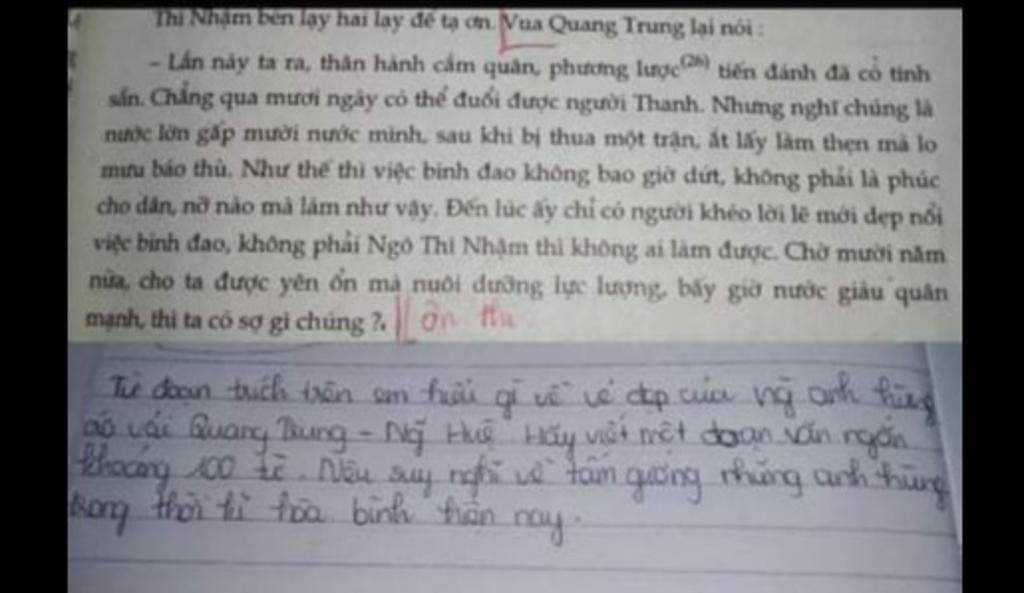 Thì Nhậm bèn lạy hai lạy để tạ ơn. Vua Quang Trung lại nói :
– Lần này ta ra, thân hành cầm quân, phương lược(26) tiến đánh đã có tính
sẵn. Chẳng qua mươi ngày có thể đuổi được người Thanh. Nhưng nghĩ chúng là
nước lớn gấp mười nước mình, sau khi bị thua một trận, ắt lấy làm thẹn mà lo
mưu báo thù. Như thế thì việc binh đao không bao giờ dứt, không phải là phúc
cho dân, nỡ nào mà làm như vậy. Đến lúc ấy chỉ có người khéo lời lẽ mới dẹp nổi
việc binh đao, không phải Ngô Thì Nhậm thì không ai làm được. Chờ mười năm
nữa, cho ta được yên ổn mà nuôi dưỡng lực lượng, bấy giờ nước giàu quân
mạnh, thì ta có sợ gì chúng ?. ôn thi
Từ đoạn trích trên em hiểu gì về vẻ đẹp của ng anh hùng
áo vải Quang Trung - Ng~ Huệ Hãy viết một đoạn văn ngắn
khoảng 100 từ. Nêu suy nghĩ về tấm gương những anh hùng
trong thời kì hòa bình hiện nay.